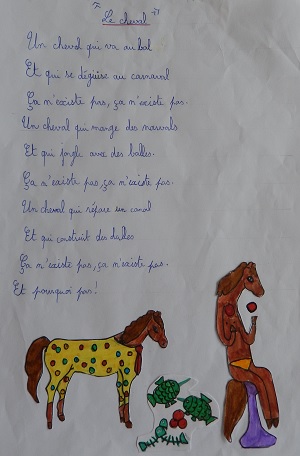 "Le cheval"
Un cheval qui va au bal
Et qui se déguise au carnaval
Ça n'existe pas, ça n'existe pas.
Un cheval qui mange des narvals
Et qui jongle avec des balles.
Ça n'existe pas, ça n'existe pas.
Un cheval qui répare un canal
Et qui construit des dalles
Ça n'existe pas, ça n'existe pas.
Et pourquoi pas!